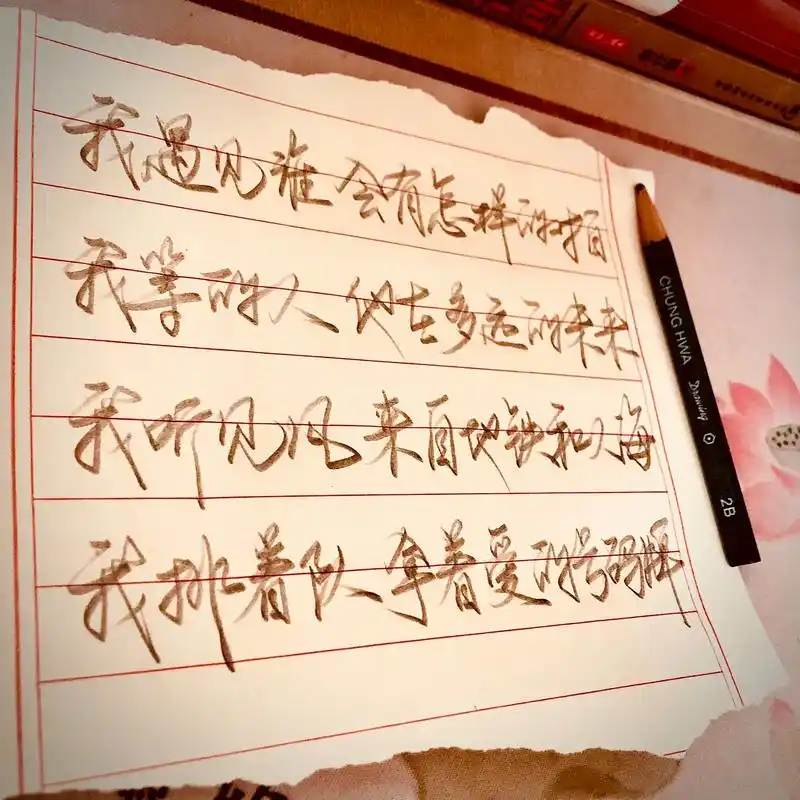 我遇见谁 会有怎样的对白
我等的人 他在多远的未来
我听见风 来自地铁和人海
我排着队 拿着爱的号码牌
CHUNG HWA Drawing 2B